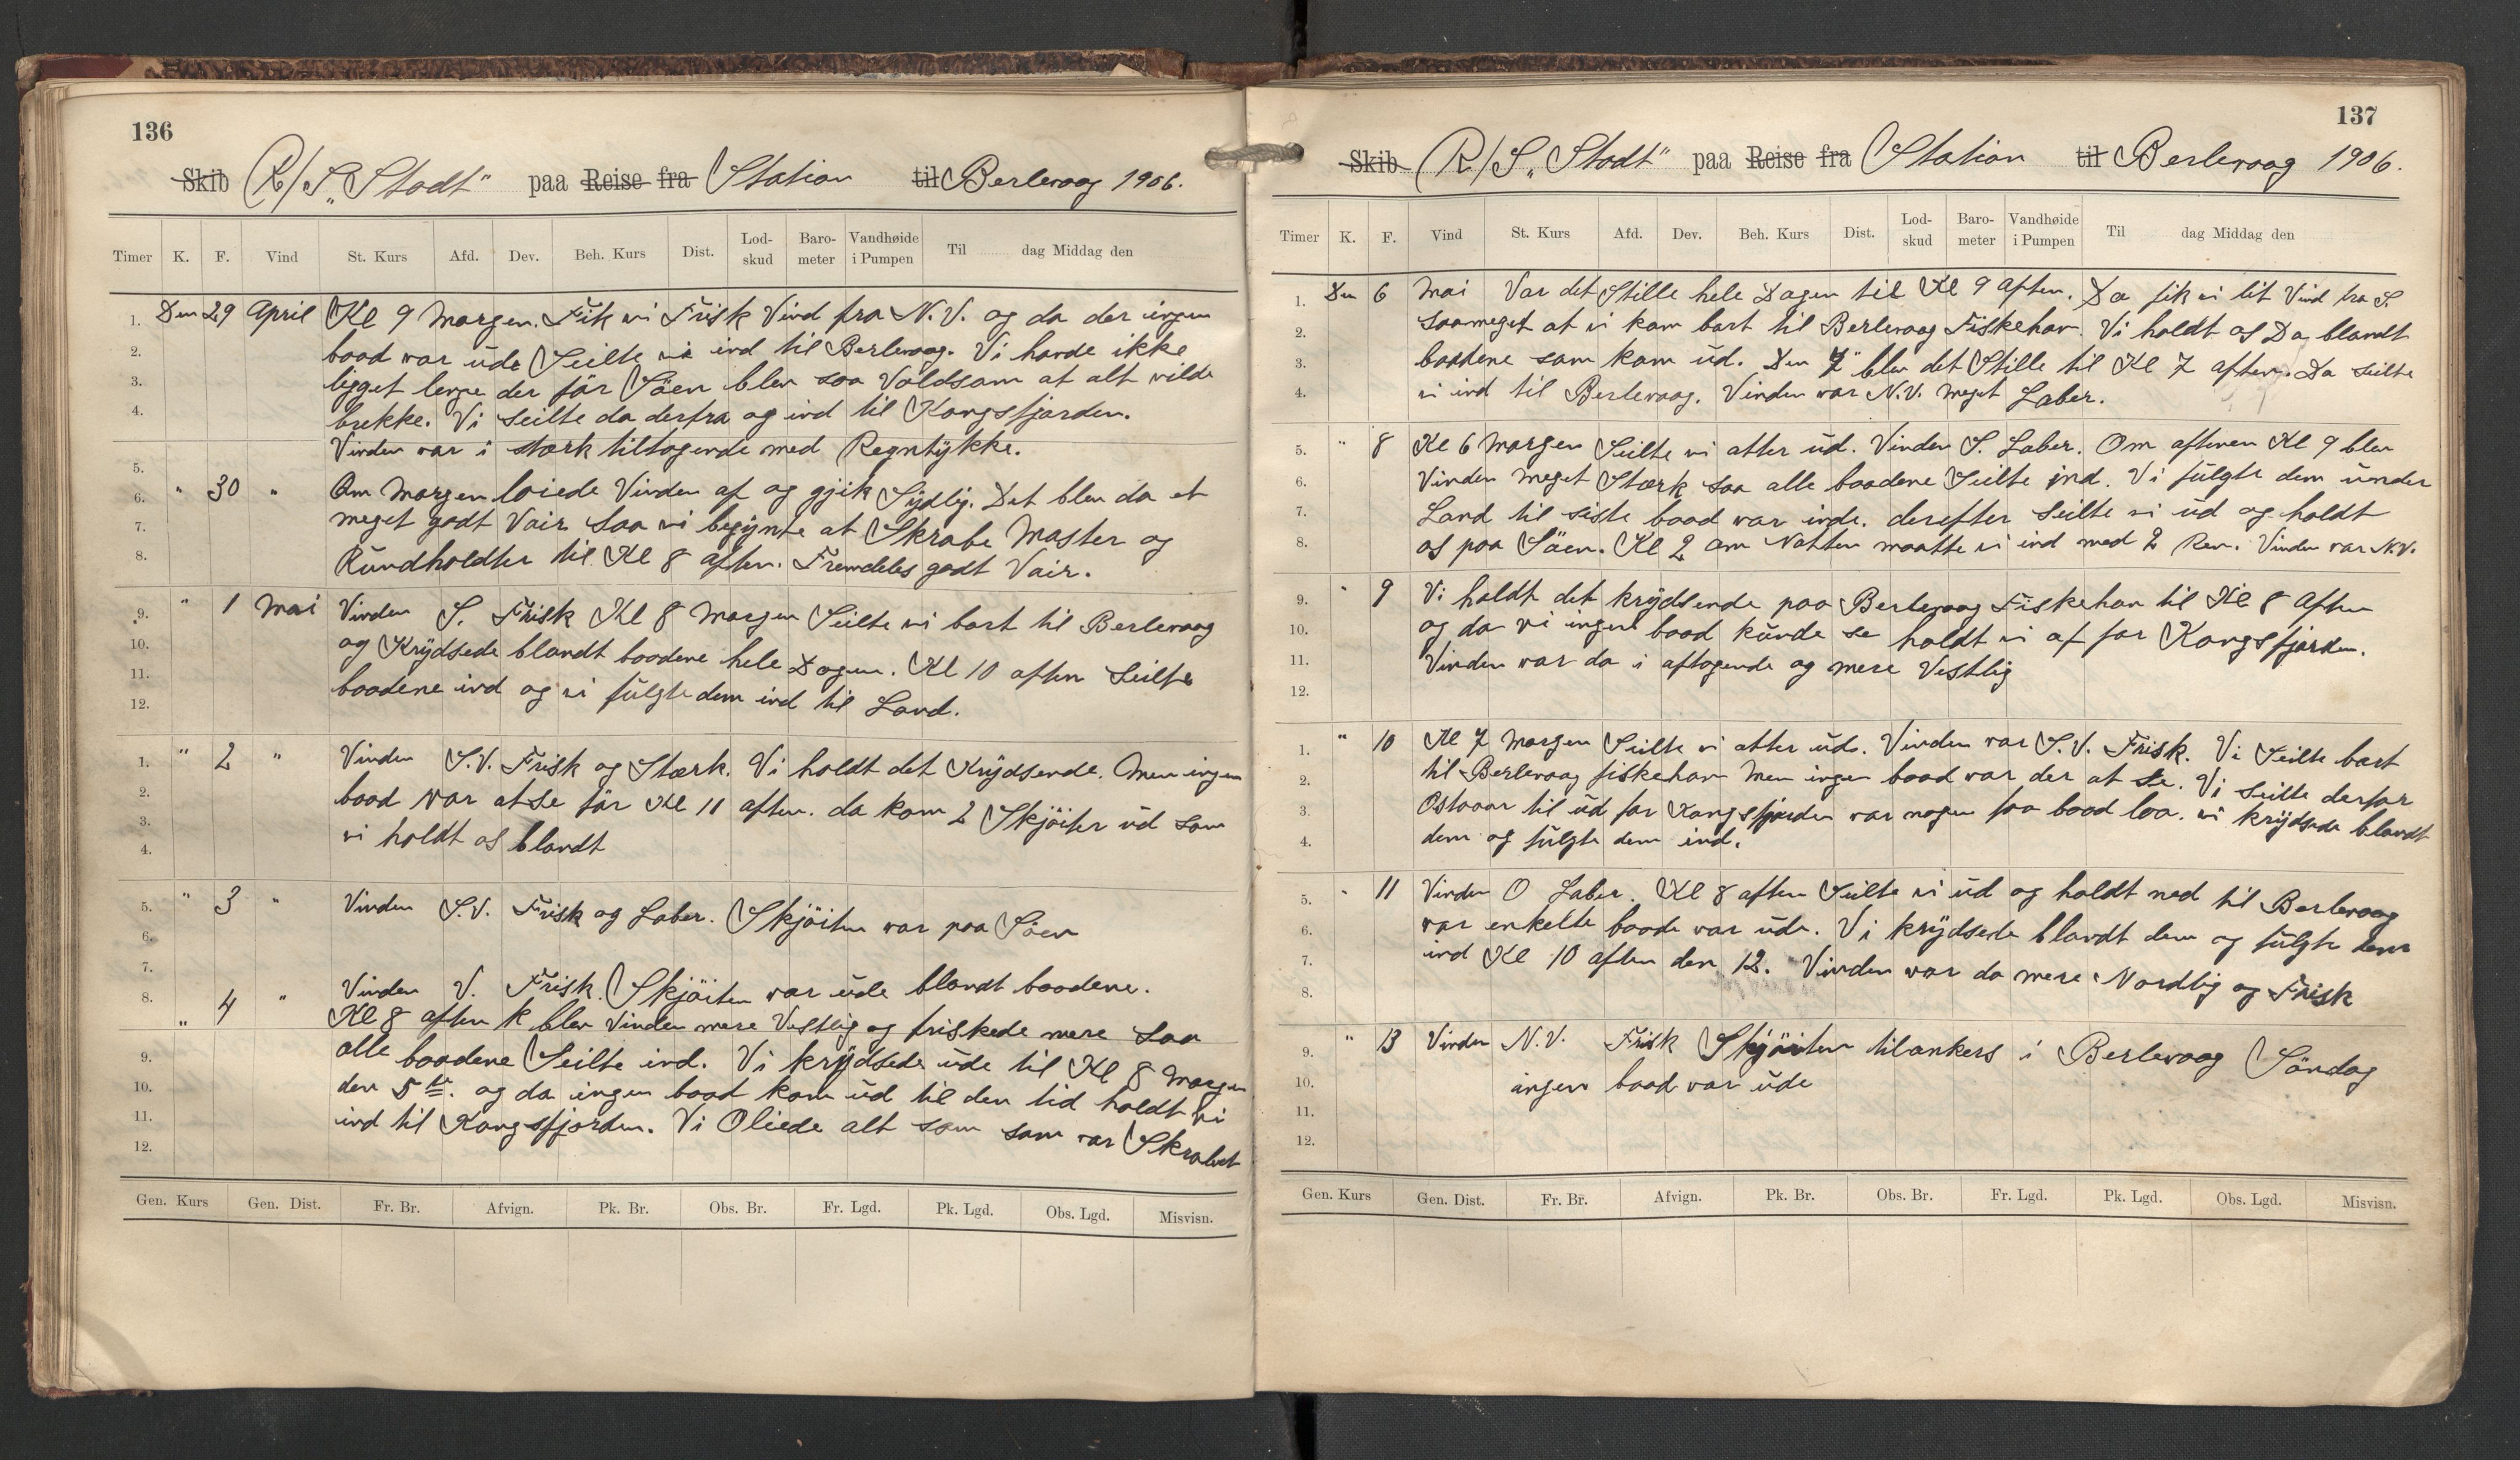 136
Skib R/S „Stadt" paa Reise fra Station til Berlevaag 1906.
Timer K. F. Vind St. Kurs Afd. Dev. Beh. Kurs Dist. Lod-skud Baro-meter Vandhøide i Pumpen Til dag Middag den
1. Den 29 April Kl 9 Morgen. Fik vi Frisk Vind fra N.V. og da der ingen
2. baad var ude Seilte vi ind til Berlevaag. Vi havde ikke
3. ligget lenge der før Söen blev saa Voldsom at alt vilde
4. brekke. Vi seilte da derfra og ind til Kongsfjorden.
Vinden var i stærk tiltagende med Regntykke.
5.
6. " 30 " Om Morgen loiede Vinden af og gjik Sydlig. Det blev da et
7. meget godt Vair saa vi begynte at Skrabe Master og
8. Rundholdter til Kl 8 aften. Fremdeles godt Vair.
9. " 1 Mai Vinden S. Frisk Kl 8 Morgen Seilte vi bort til Berlevaag
10. og Krydsede blandt baadene hele Dagen. Kl 10 aften Seilte
11. baadene ind og vi fulgte dem ind til Land.
12.
1. " 2 " Vinden S.V. Frisk og Stærk. Vi holdt det Krydsende. Men ingen
2. baad var at se før Kl 11 aften. da kom 2 Skjöiter ud som
3. vi holdt os blandt
4.
5. " 3 " Vinden S.V. Frisk og Laber. Skjöiten var paa Söen
6.
7.
8. " 4 " Vinden V. Frisk. Skjöiten var ude blandt baadene.
Kl 8 aften k blev Vinden mere Vestlig og friskede mere saa
9. alle baadene Seilte ind. Vi krydsede ude til Kl 8 Morgen
10. den 5te. og da ingen baad kom ud til den tid holdt vi
11. ind til Kongsfjorden. Vi Oliede alt som som var Skrabet
12.
Gen. Kurs Gen. Dist. Fr. Br. Afvign. Pk. Br. Obs. Br. Fr. Lgd. Pk. Lgd. Obs. Lgd. Misvisn.
137
Skib R/S „Stadt" paa Reise fra Station til Berlevaag 1906.
Timer K. F. Vind St. Kurs Afd. Dev. Beh. Kurs Dist. Lod-skud Baro-meter Vandhøide i Pumpen Til dag Middag den
1. Den 6 Mai Var det Stille hele Dagen til Kl 9 aften. Da fik vi lit Vind fra S.
2. saameget at vi kom bort til Berlevaag Fiskehav. Vi holdt os Da blandt
3. baadene som kom ud. Den 7" blev det Stille til Kl 7 aften. Da seilte
4. vi ind til Berlevaag. Vinden var N.V. meget Laber.
5. " 8 Kl 6 Morgen Seilte vi atter ud. Vinden S. Laber. Om aftenen Kl 9 blev
6. Vinden meget Stærk saa alle baadene Seilte ind. Vi fulgte dem under
7. Land til siste baad var inde. derefter seilte vi ud og holdt
8. os paa Söen. Kl 2 om Natten maatte vi ind med 2 Rev. Vinden var N.V.
9. " 9 Vi holdt det krydsende paa Berlevaag Fiskehav til Kl 8 Aften
10. og da vi ingen baad kunde se holdt vi af for Kongsfjorden.
11. Vinden var da i aftagende og mere Vestlig
12.
1. " 10 Kl 7 Morgen Seilte vi atter ud. Vinden var S.V. Frisk. Vi Seilte bort
2. til Berlevaag fiskehav Men ingen baad var der at se. Vi seilte derfor
3. Ostover til ud for Kongsfjorden var nogen faa baad laa. vi krydsede blandt
4. dem og fulgte dem ind.
5. " 11 Vinden O Laber. Kl 8 aften Seilte vi ud og holdt ned til Berlevaag
6. var enkelte baade var ude. Vi krydsede blandt dem og fulgte dem
7. ind Kl 10 aften den 12. Vinden var da mere Nordlig og Frisk
8.
9. " 13 Vinden N.V. Frisk Skjöiten tilankers i Berlevaag Söndag
10. ingen baad var ude
11.
12.
Gen. Kurs Gen. Dist. Fr. Br. Afvign. Pk. Br. Obs. Br. Fr. Lgd. Pk. Lgd. Obs. Lgd. Misvisn.